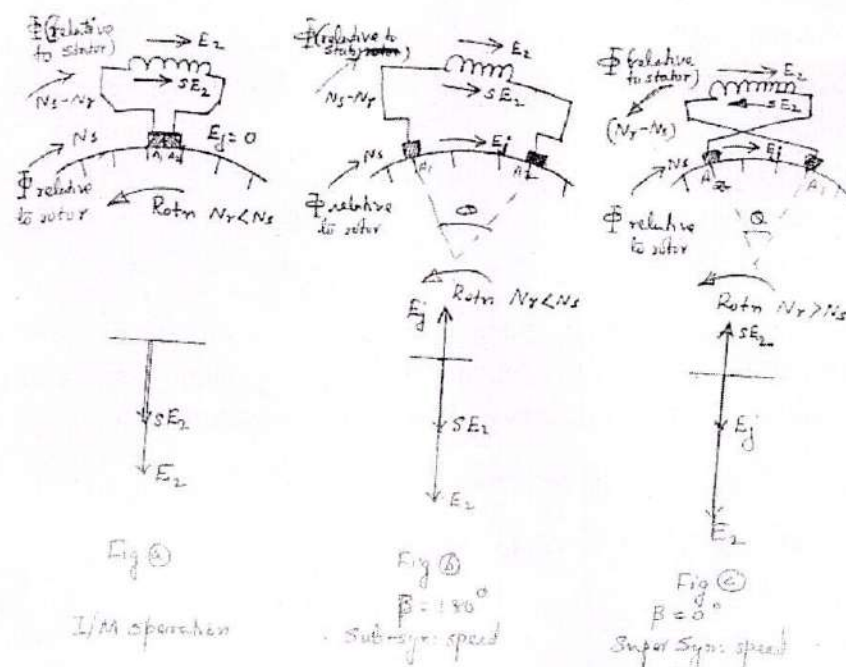 Φ (relative
to stator)
E₂
SE₂
Ns-Nr
Ns
A₁ A₂
Ej = 0
Φ relative
to rotor
Rotn Nr < Ns
SE₂
E₂
Fig ⓐ
I/M operation
Φ (relative to
stator)
E₂
SE₂
Ns-Nr
Ns
A₁
Ej
A₂
Φ relative
to rotor
Rotn Nr < Ns
Ej
SE₂
E₂
Fig ⓑ
β = 180°
Sub-syn: speed
Φ (relative
to stator)
E₂
SE₂
(Nr-Ns)
Ns
Ej
A₂
A₁
Φ relative
to rotor
θ
Rotn Nr > Ns
SE₂
Ej
E₂
Fig ⓒ
β = 0°
Super Syn: speed